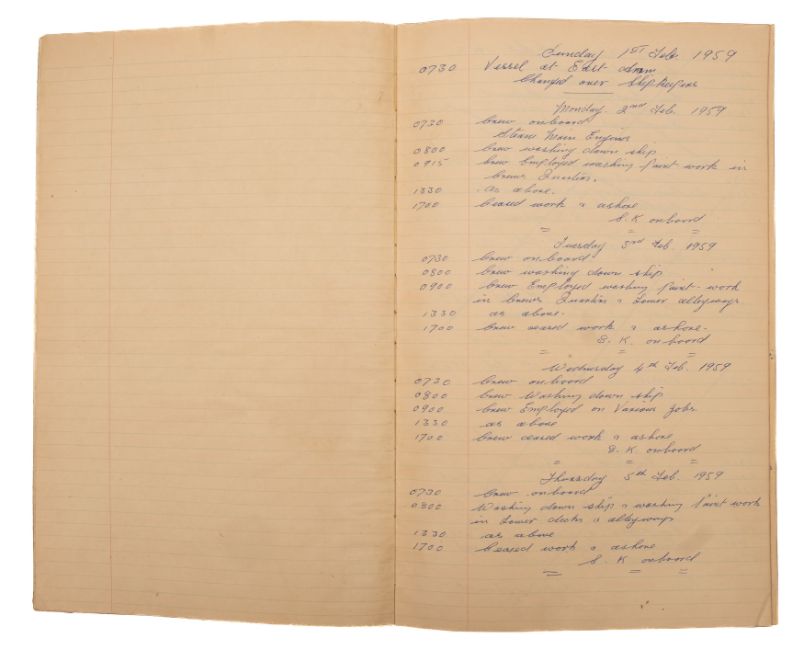 Sunday 1ST Feb. 1959
0730 Vessel at East arm
Changed over Shipkeepers
Monday 2nd Feb. 1959
0730 Crew onboard
Steam Main Engines
0800 Crew washing down ship
0915 Crew Employed washing paint work in
Crews Quarters.
1330 As above.
1700 Ceased work & ashore
S. K. onboard
Tuesday 3rd Feb. 1959
0730 Crew onboard
0800 Crew washing down ship
0900 Crew Employed washing paint-work
in Crews Quarters & Lower alleyways
1330 as above.
1700 Crew ceased work & ashore.
S. K. onboard
Wednesday 4th Feb. 1959
0730 Crew onboard
0800 Crew Washing down ship
0900 Crew Employed on Various jobs
1330 as above
1700 Crew ceased work & ashore
S. K. onboard
Thursday 5th Feb. 1959
0730 Crew onboard
0800 Washing down ship & washing paint work
in Lower decks & alleyways
1330 as above
1700 Ceased work & ashore
S. K. onboard